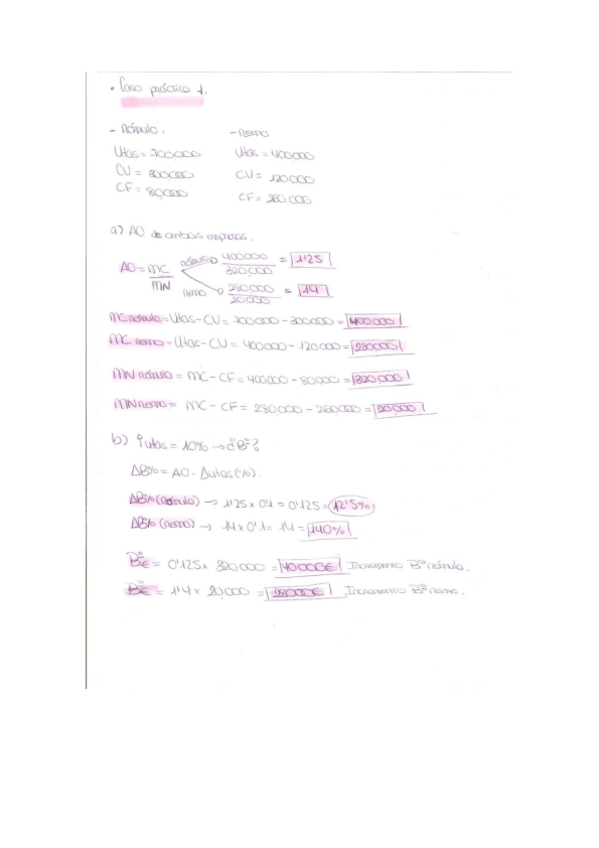 • Caso práctico 1.
- Rómulo. - Remo
Vtas = 700,000 Vtas = 400,000
CV = 300,000 CV = 120,000
CF = 80,000 CF = 260,000
a) AO de ambas empresas.
AO = MC / MN
Rómulo 400,000 / 320,000 = 1'25
Remo 280,000 / 20,000 = 14
MC rómulo = Vtas - CV = 700,000 - 300,000 = 400,000
MC remo = Vtas - CV = 400,000 - 120,000 = 280,000
MN rómulo = MC - CF = 400,000 - 80,000 = 320,000
MN remo = MC - CF = 280,000 - 260,000 = 20,000
b) ↑ vtas = 10% → ¿Bº?
ΔB% = AO · Δvtas (%).
ΔB% (rómulo) → 1'25 x 0'1 = 0'125 = 12'5%
ΔB% (remo) → 14 x 0'1 = 1'4 = 140%
Bº€ = 0'125 x 320,000 = 40,000€ Incremento Bº rómulo.
Bº€ = 1'4 x 20,000 = 28000€ Incremento Bº remo.